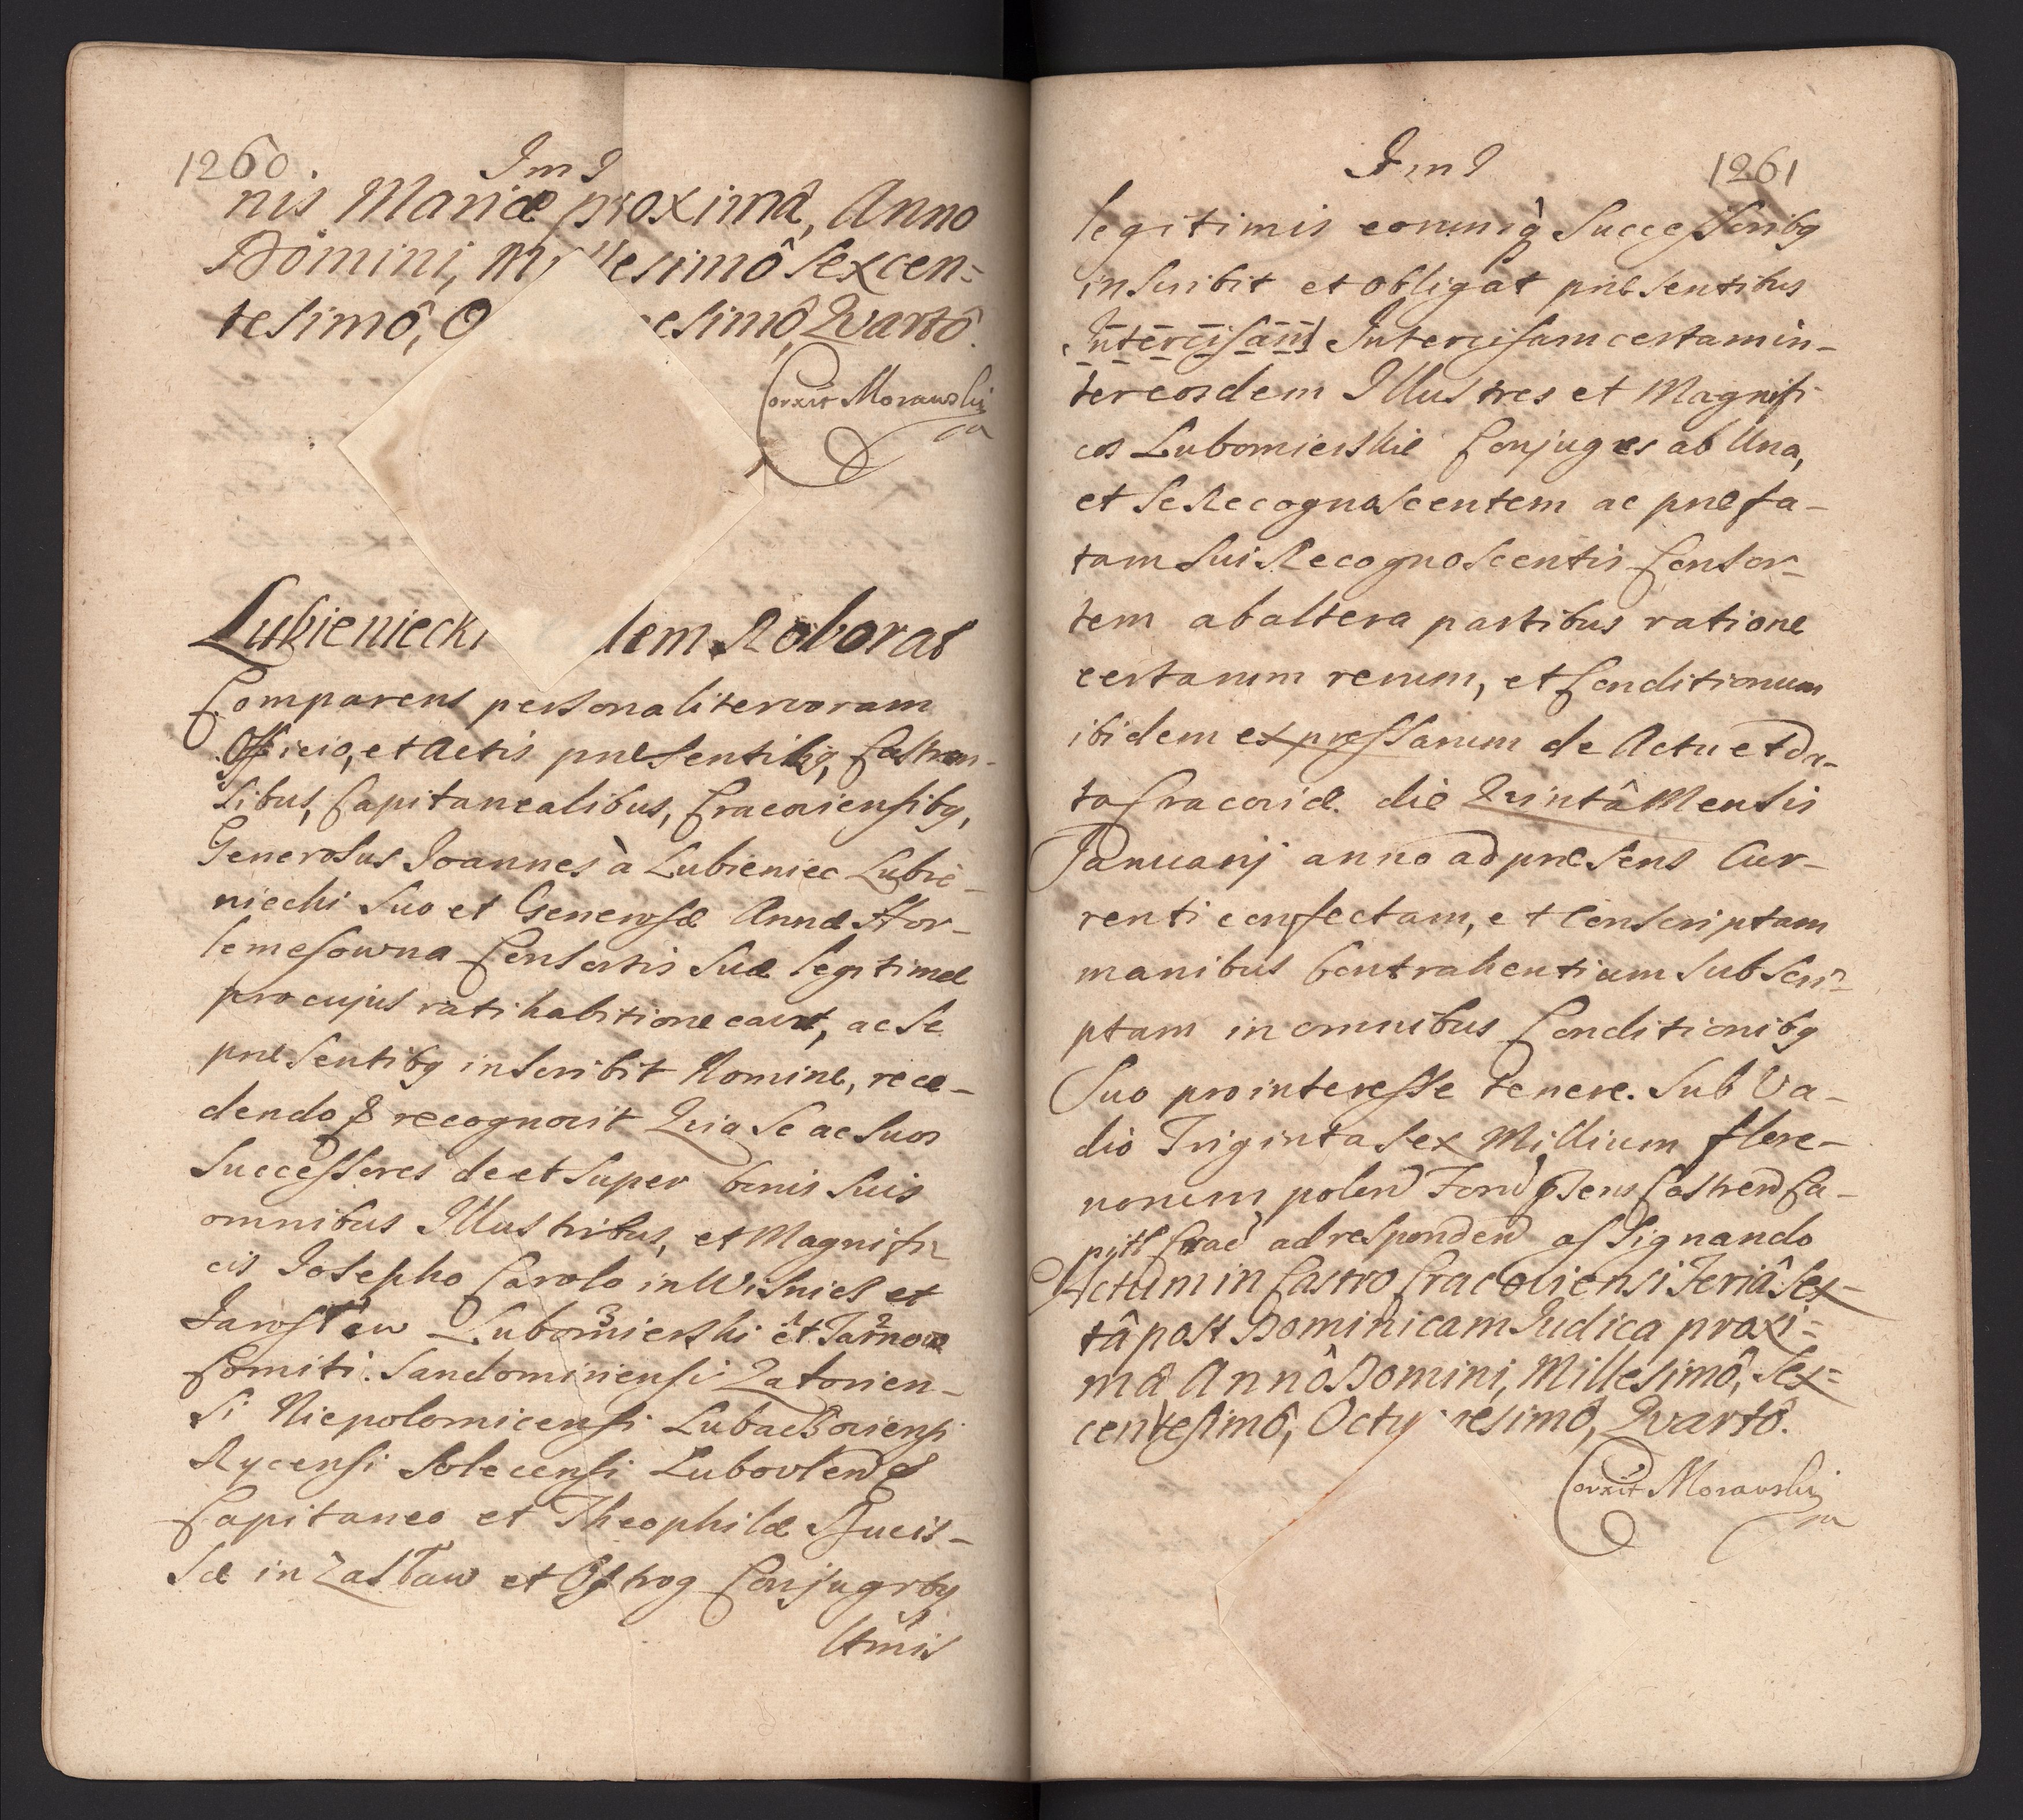 1260.
nis Mariæ proximâ, Anno
Domini, M llesimô Sexcen=
tesimô, O esimô, Qvartô.
Corxit Morawski
Lubieniecki dem Roborat
Comparens personaliter coram
Officio, et Actis præsentibg, Castren-
sibus, Capitanealibus, Cracoviensibg,
Generosus Joannes à Lubieniec Lubie-
niecki suo et Generosæ Annæ Mor-
lemesowna Consortis suæ legitimæ
pro cujus ratihabitione cavet, ac se
præsentibg inscribit Nomine, rece-
dendo & recognovit Quia se ac suos
Successores de et super bonis suis
omnibus Illustribus, et Magnifi-
cis Josepho Carolo in Wisnicz et
Jarosław Lubomierski et Tarnow
3 1 2
Comiti. Sandomiriensi Zatorien-
si Niepolomicensi Lubaczoviensi
Rycensi Solecensi Lubovlen &
Capitaneo et Theophilæ Ducis-
sæ in Zasław et Ostrog Conjugibg
1261
legitimis eorumq Successoribg
inscribit et obligat præsentibus
Intercisam Intercisam certam in-
ter eosdem Illustres et Magnifi-
cos Lubomierskie Conjuges ab Una,
et se Recognoscentem ac præfa-
tam sui Recognoscentis Consor-
tem ab altera partibus ratione
certarum rerum, et Conditionum
ibidem expressarum de Actu et Da-
ta Cracoviæ die Quintâ Mensis
Januarij anno ad præsens Cur-
renti confectam, et Conscriptam
manibus Contrahentium subscri-
ptam in omnibus Conditionibg
Suo pro interesse tenere. Sub Va-
dio Triginta sex Millium flore-
norum polon Foru præsens Castren Ca-
pitl Crac ad responden assignando
Actum in Castro Cracoviensi Feriâ Sex-
tâ post Dominicam Judica proxi=
ma Annô Domini, Millesimô, Sex=
centesimô, Octu esimô, Qvartô.
Corxit Morawski